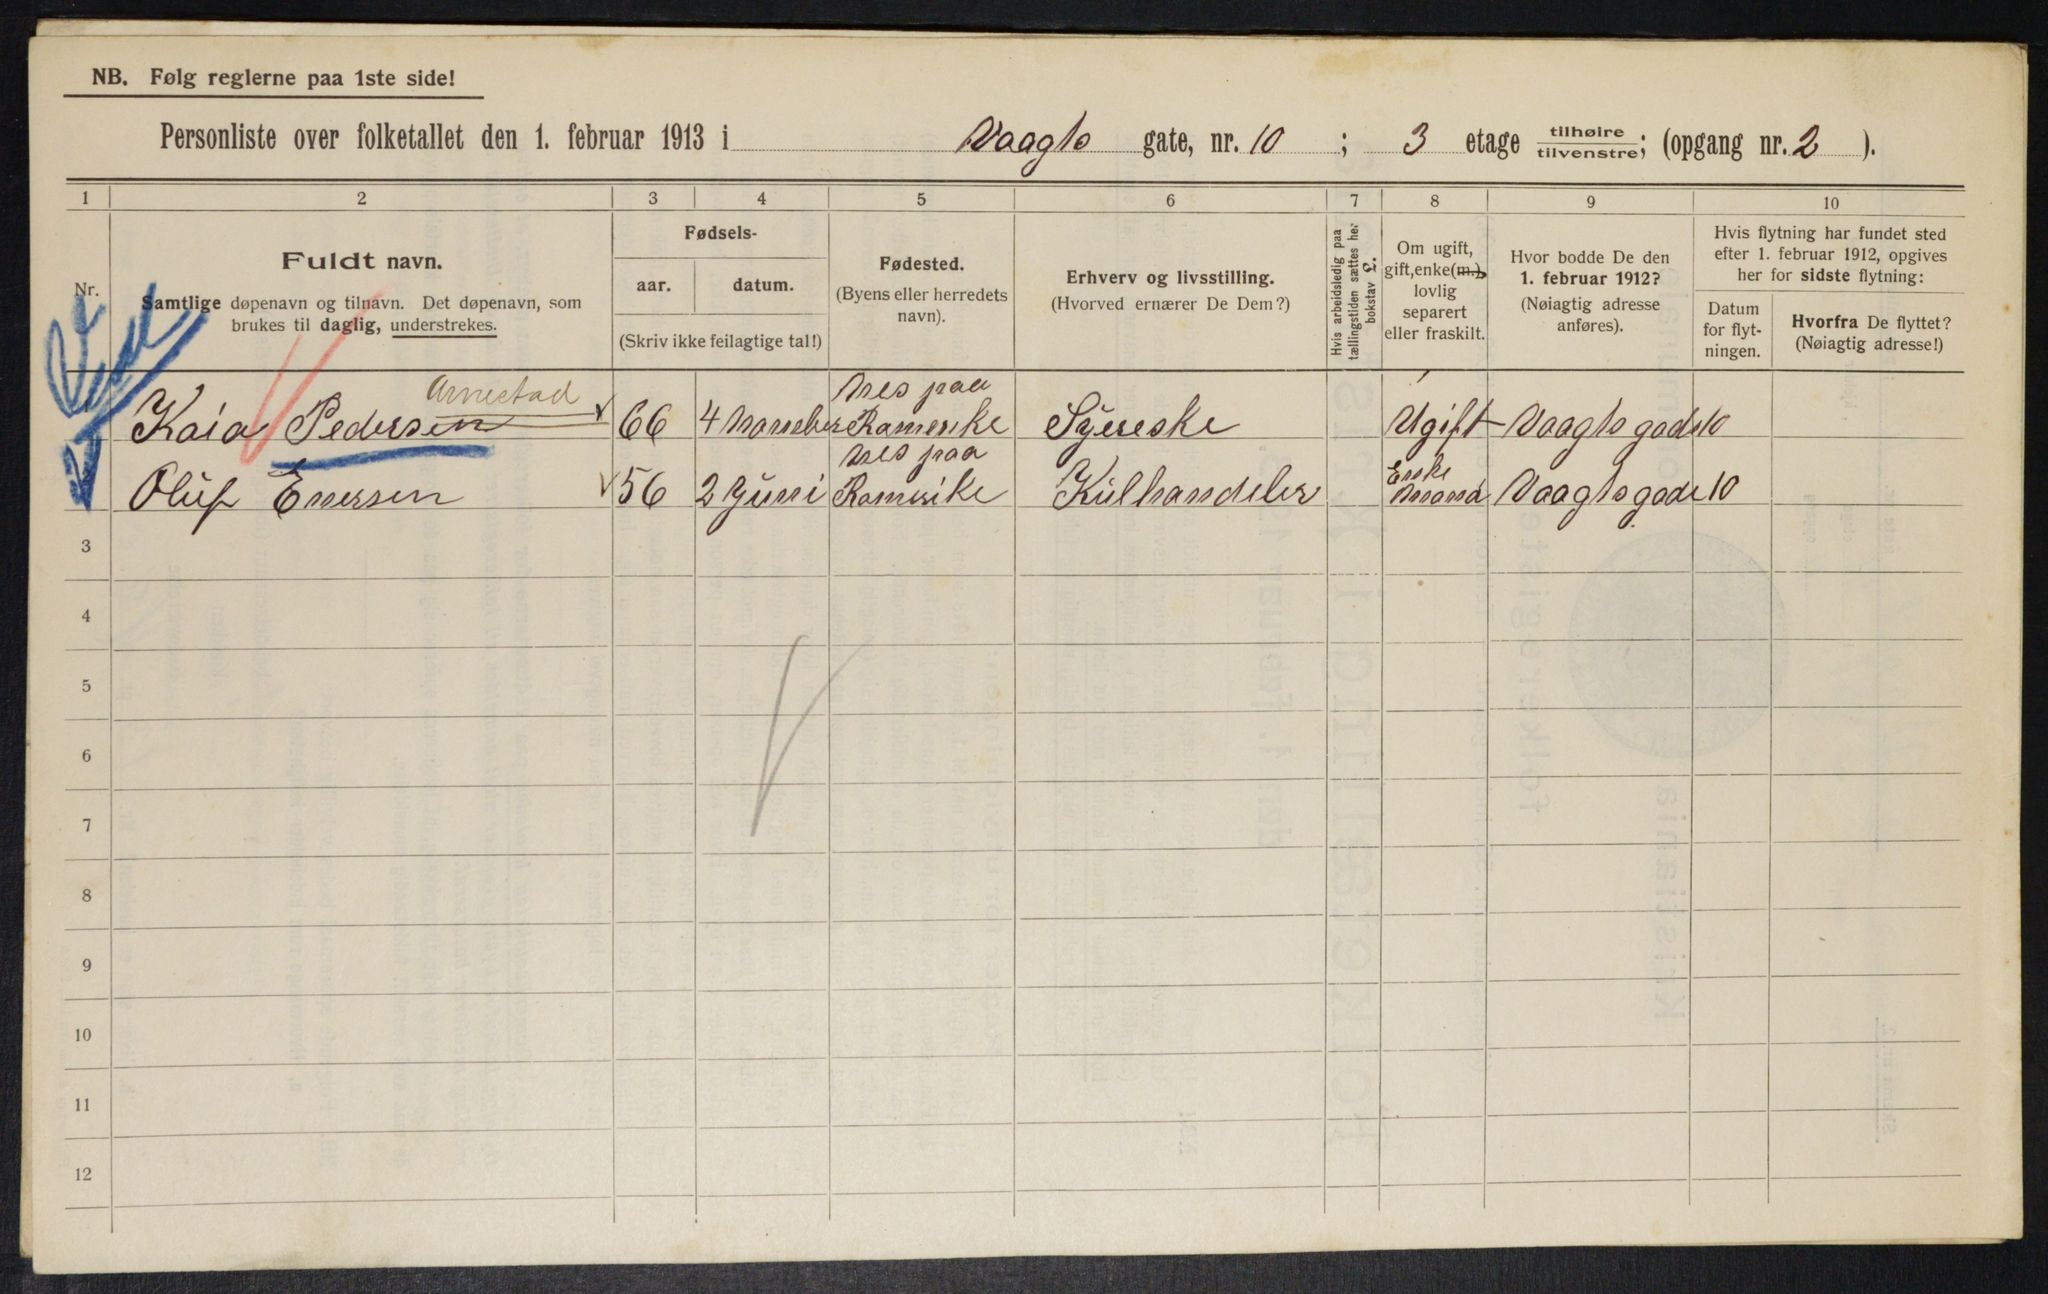 NB. Følg reglerne paa 1ste side!
Personliste over folketallet den 1. februar 1913 i Vaagts gate, nr. 10 ; 3 etage tilhøire tilvenstre; (opgang nr. 2 ).
1 2 3 4 5 6 7 8 9 10
Nr.
Fuldt navn.
Samtlige døpenavn og tilnavn. Det døpenavn, som
brukes til daglig, understrekes.
Fødsels-
aar. datum.
(Skriv ikke feilagtige tal!)
Fødested.
(Byens eller herredets
navn).
Erhverv og livsstilling.
(Hvorved ernærer De Dem?)
Hvis arbeidsledig paa
tællingstiden sættes her
bokstav L.
Om ugift,
gift, enke(m.),
lovlig
separert
eller fraskilt.
Hvor bodde De den
1. februar 1912?
(Nøiagtig adresse
anføres).
Hvis flytning har fundet sted
efter 1. februar 1912, opgives
her for sidste flytning:
Datum
for flyt-
ningen.
Hvorfra De flyttet?
(Nøiagtig adresse!)
Arnestad
Nes paa
1 Kaia Pedersen 66 4 Romerike Syerske Ugift Vaagts gade 10
Nes paa Enke
2 Oluf Enersen 56 2 Juni Romerike Kulhandeler Mand Vaagts gade 10
3
4
5
6
7
8
9
10
11
12